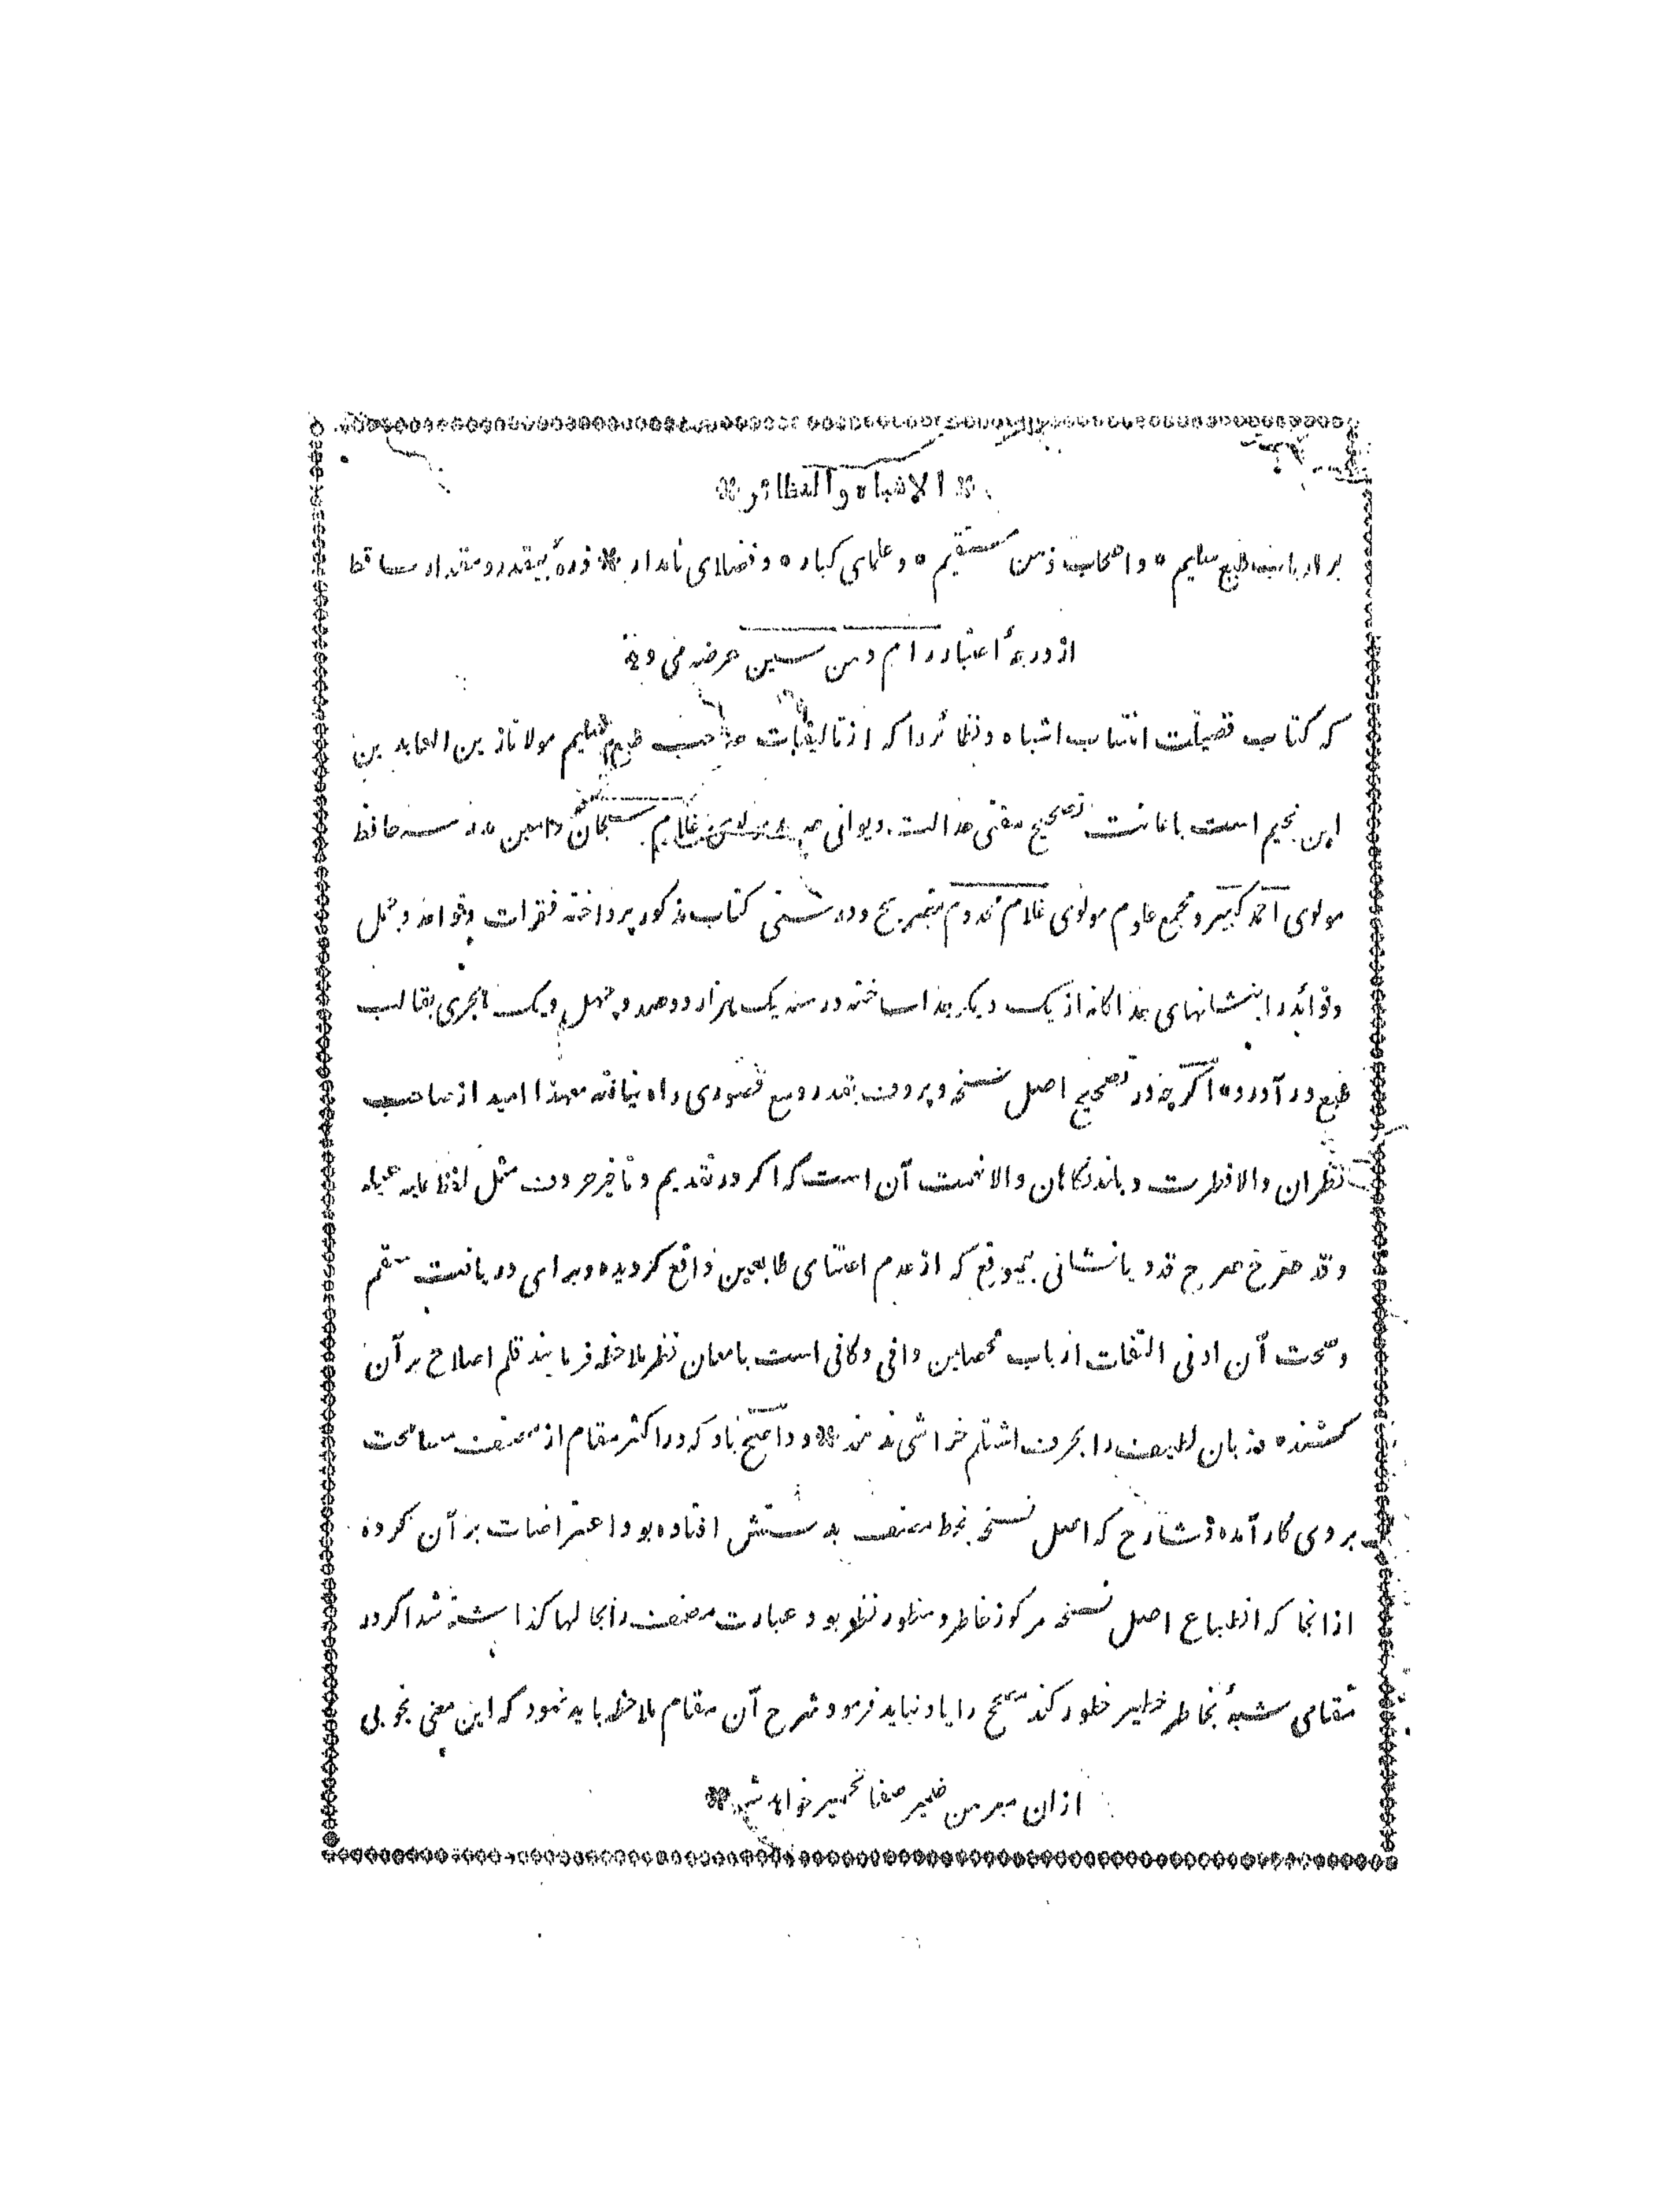 * الاشباه والنظائر *
بر ارباب طبع سلیم ه و اصحاب ذهن مستقیم ه و علمای کبار ه و فضلای نامدار * ذرهٔ بیقدر و مقدار ساقط
از درجهٔ اعتبار رام دهن سین عرضه می دهد
که کتاب فضیلت انتساب اشباه و نظائر را که از تالیفات صاحب طبع سلیم مولانا زین العابدین
ابن نجیم است باعانت تصحیح مفتی عدالت دیوانی مولوی غلام سبحان و امین مدرسه حافظ
مولوی احمد کبیر و مجمع علوم مولوی غلام مخدوم بتصریح و درستی کتاب مذکور پرداخته فقرات وقواعد و جمل
و فوائد را بنشانهای جداکانه از یک دیکر جدا ساخته در سنه یک هزار دوصد و چهل ویک هجری بقالب
طبع در آورده اکرچه در تصحیح اصل نسخه و پروف بقدر وسع قصوری راه نیافته معهذا امید از صاحب
نظران والا فطرت و بالا همت آن است که اکر در تقدیم و تاخیر حروف مثل لفظ علیه عیله
و قد صرح قدو یا نشانی بیموقع که از عدم اعتنای طابعین واقع کردیده و برای دریافت سقم
و صحت آن ادنی التفات ارباب محصلین وافی و کافی است بامعان نظر ملاحظه فرمایند قلم اصلاح بر آن
کشنده و زبان لطیف را بحرف اشتلم خراشی ندهند * و واضح باد که در اکثر مقام از مصنف مسامحت
بر روی کار آمده و شارح که اصل نسخه بخط مصنف بدستش افتاده بود اعتراضات بر آن کرده
ازانجا که انطباع اصل نسخه مرکوز خاطر و منظور نظر بود عبارت مصنف را بحالها کذاشته شد اکر در
مقامی شبهٔ بخاطر خطیر خطور کند مصحح را یاد نباید فرمود شرح آن مقام ملاحظه باید نمود که این معنی بخوبی
ازان مبرهن ضمیر صفا تخمیر خواهد شد *